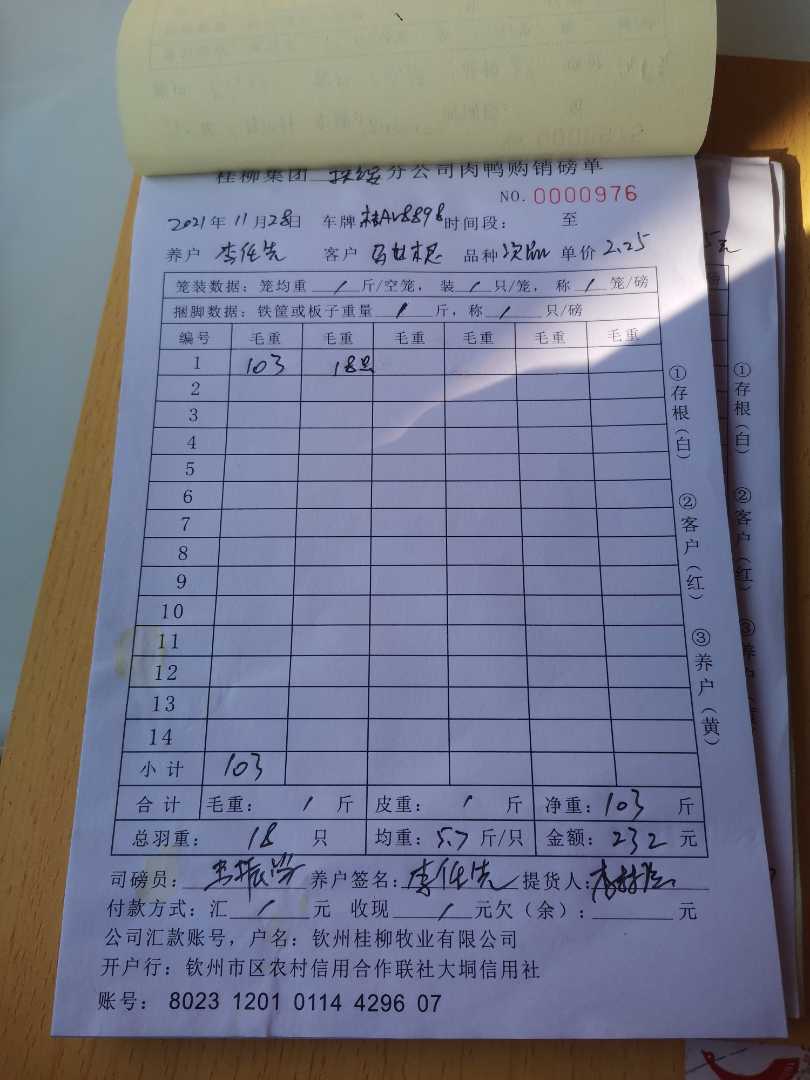 桂柳集团 扶绥 分公司肉鸭购销磅单
NO. 0000976
2021年 11月28日 车牌 桂AV8898 时间段: 至
养户 李任先 客户 品种 次品 单价 2.25
笼装数据: 笼均重 / 斤/空笼, 装 / 只/笼, 称 / 笼/磅
捆脚数据: 铁筐或板子重量 / 斤, 称 / 只/磅
编号 毛重 毛重 毛重 毛重 毛重 毛重
1 103 18只
2
3
4
5
6
7
8
9
10
11
12
13
14
小计 103
合计 毛重: / 斤 皮重: / 斤 净重: 103 斤
总羽重: 18 只 均重: 5.7 斤/只 金额: 232 元
司磅员: 养户签名: 李任先 提货人:
付款方式: 汇 / 元 收现 / 元欠(余): 元
公司汇款账号, 户名: 钦州桂柳牧业有限公司
开户行: 钦州市区农村信用合作联社大垌信用社
账号: 8023 1201 0114 4296 07
①存根(白)
②客户(红)
③养户(黄)
①存根(白)
②客户(红)